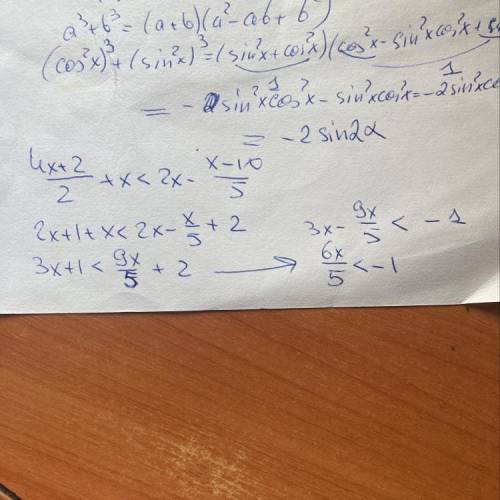 a³+b³=(a+b)(a²-ab+b²)
(cos²x)³+(sin²x)³=(sin²x+cos²x)(cos²x-sin²xcos²x+
1 1
= -2sin²xcos²x-sin²xcos²x=-2sin²xco
= -2sin2α
4x+2/2 +x<2x- x-10/5
2x+1+x<2x- x/5 +2
3x+1< 9x/5 +2 → 
3x- 9x/5 < -1
6x/5 <-1